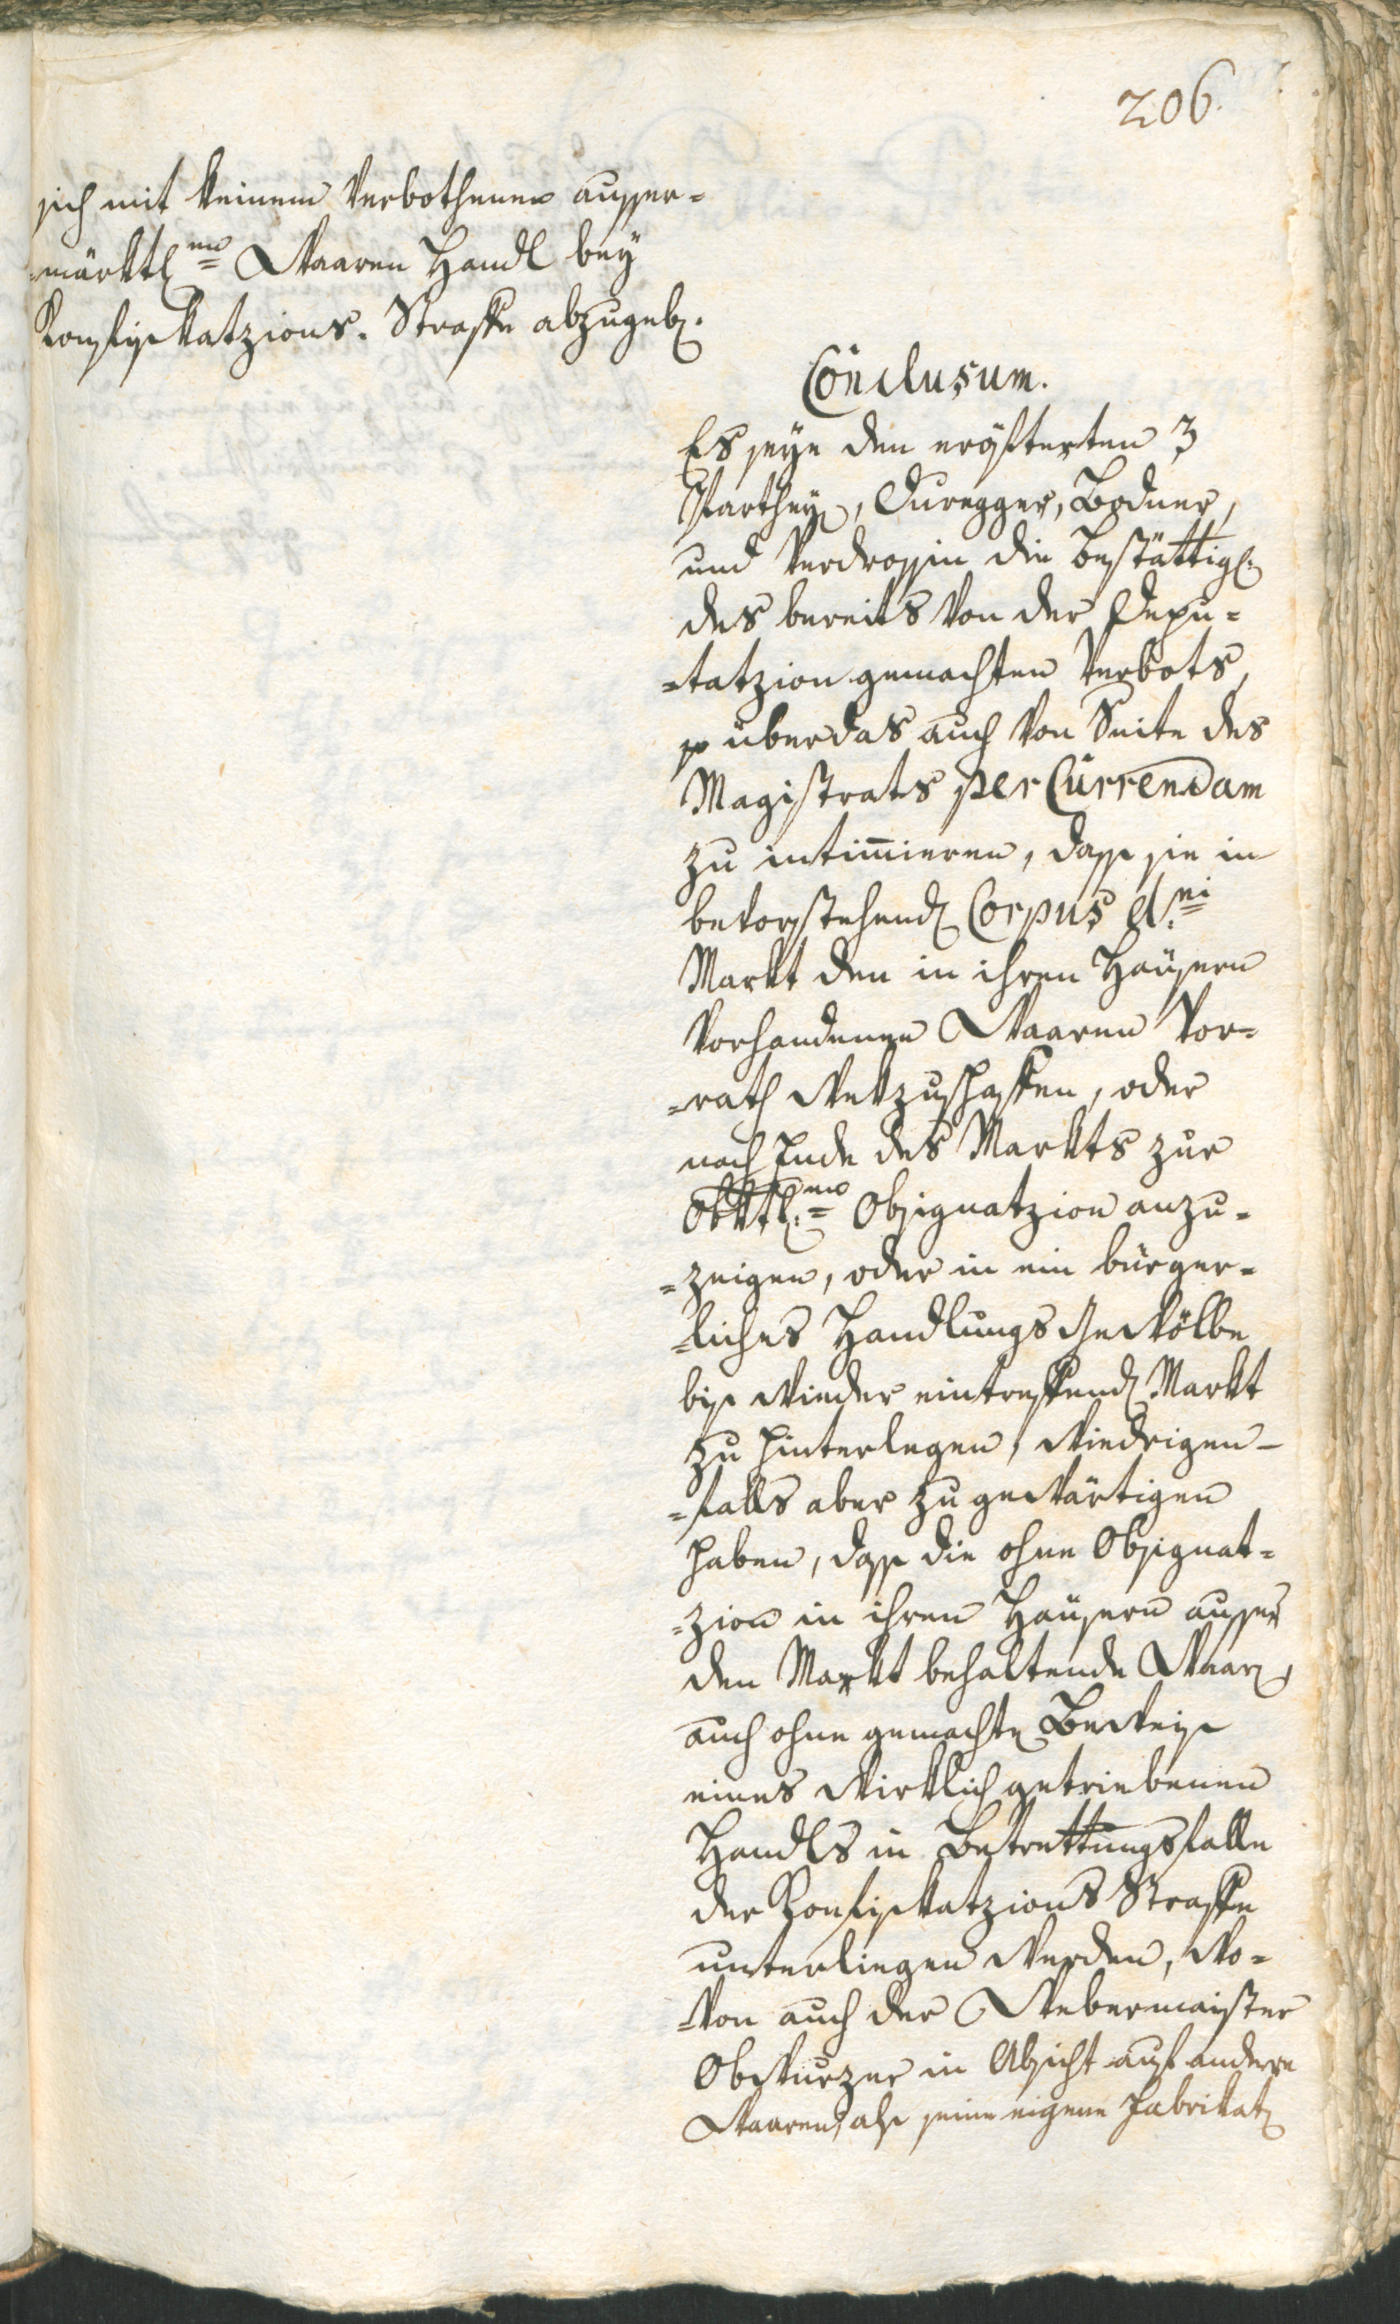 206.
sich mit keinem verbothenen ausser=
=märktl:en Waaren Handl bey
Konfiskatzions. Straffe abzugeb.
Conclusum.
Es seye den eröfterten 3
Partheyen, Auregger, Bodner,
und Verdrossin die Bestättig:
des bereits von der Depu=
=tatzion gemachten Verbots,
so überdas auch von Seite des
Magistrats per Currendam
zu intimieren, dass sie in
bevorstehend Corpus dni
Markt den in ihren Häusern
vorhandenen Waaren Vor=
=rath wekzuschaffen, oder
nach Ende des Markts zur
Obrktl:en Obsignatzion anzu=
=zeigen, oder in ein bürger=
=liches Handlungs Gewölbe
bis wieder eintreffend Markt
zu hinterlegen, wiedrigen=
=falls aber zu gewärtigen
haben, dass die ohne Obsignat=
=zion in ihren Häusern ausser
den Markt behaltende Waaren,
auch ohne gemachten Beweis
eines wirklich getriebenen
Handls in Betrettungsfalle
der Konfiskatzions Straffe
unterliegen werden, wo=
=von auch der Webermaister
Obwurzer in Absicht auf andere
Waaren, als seine eigene Fabrikaten